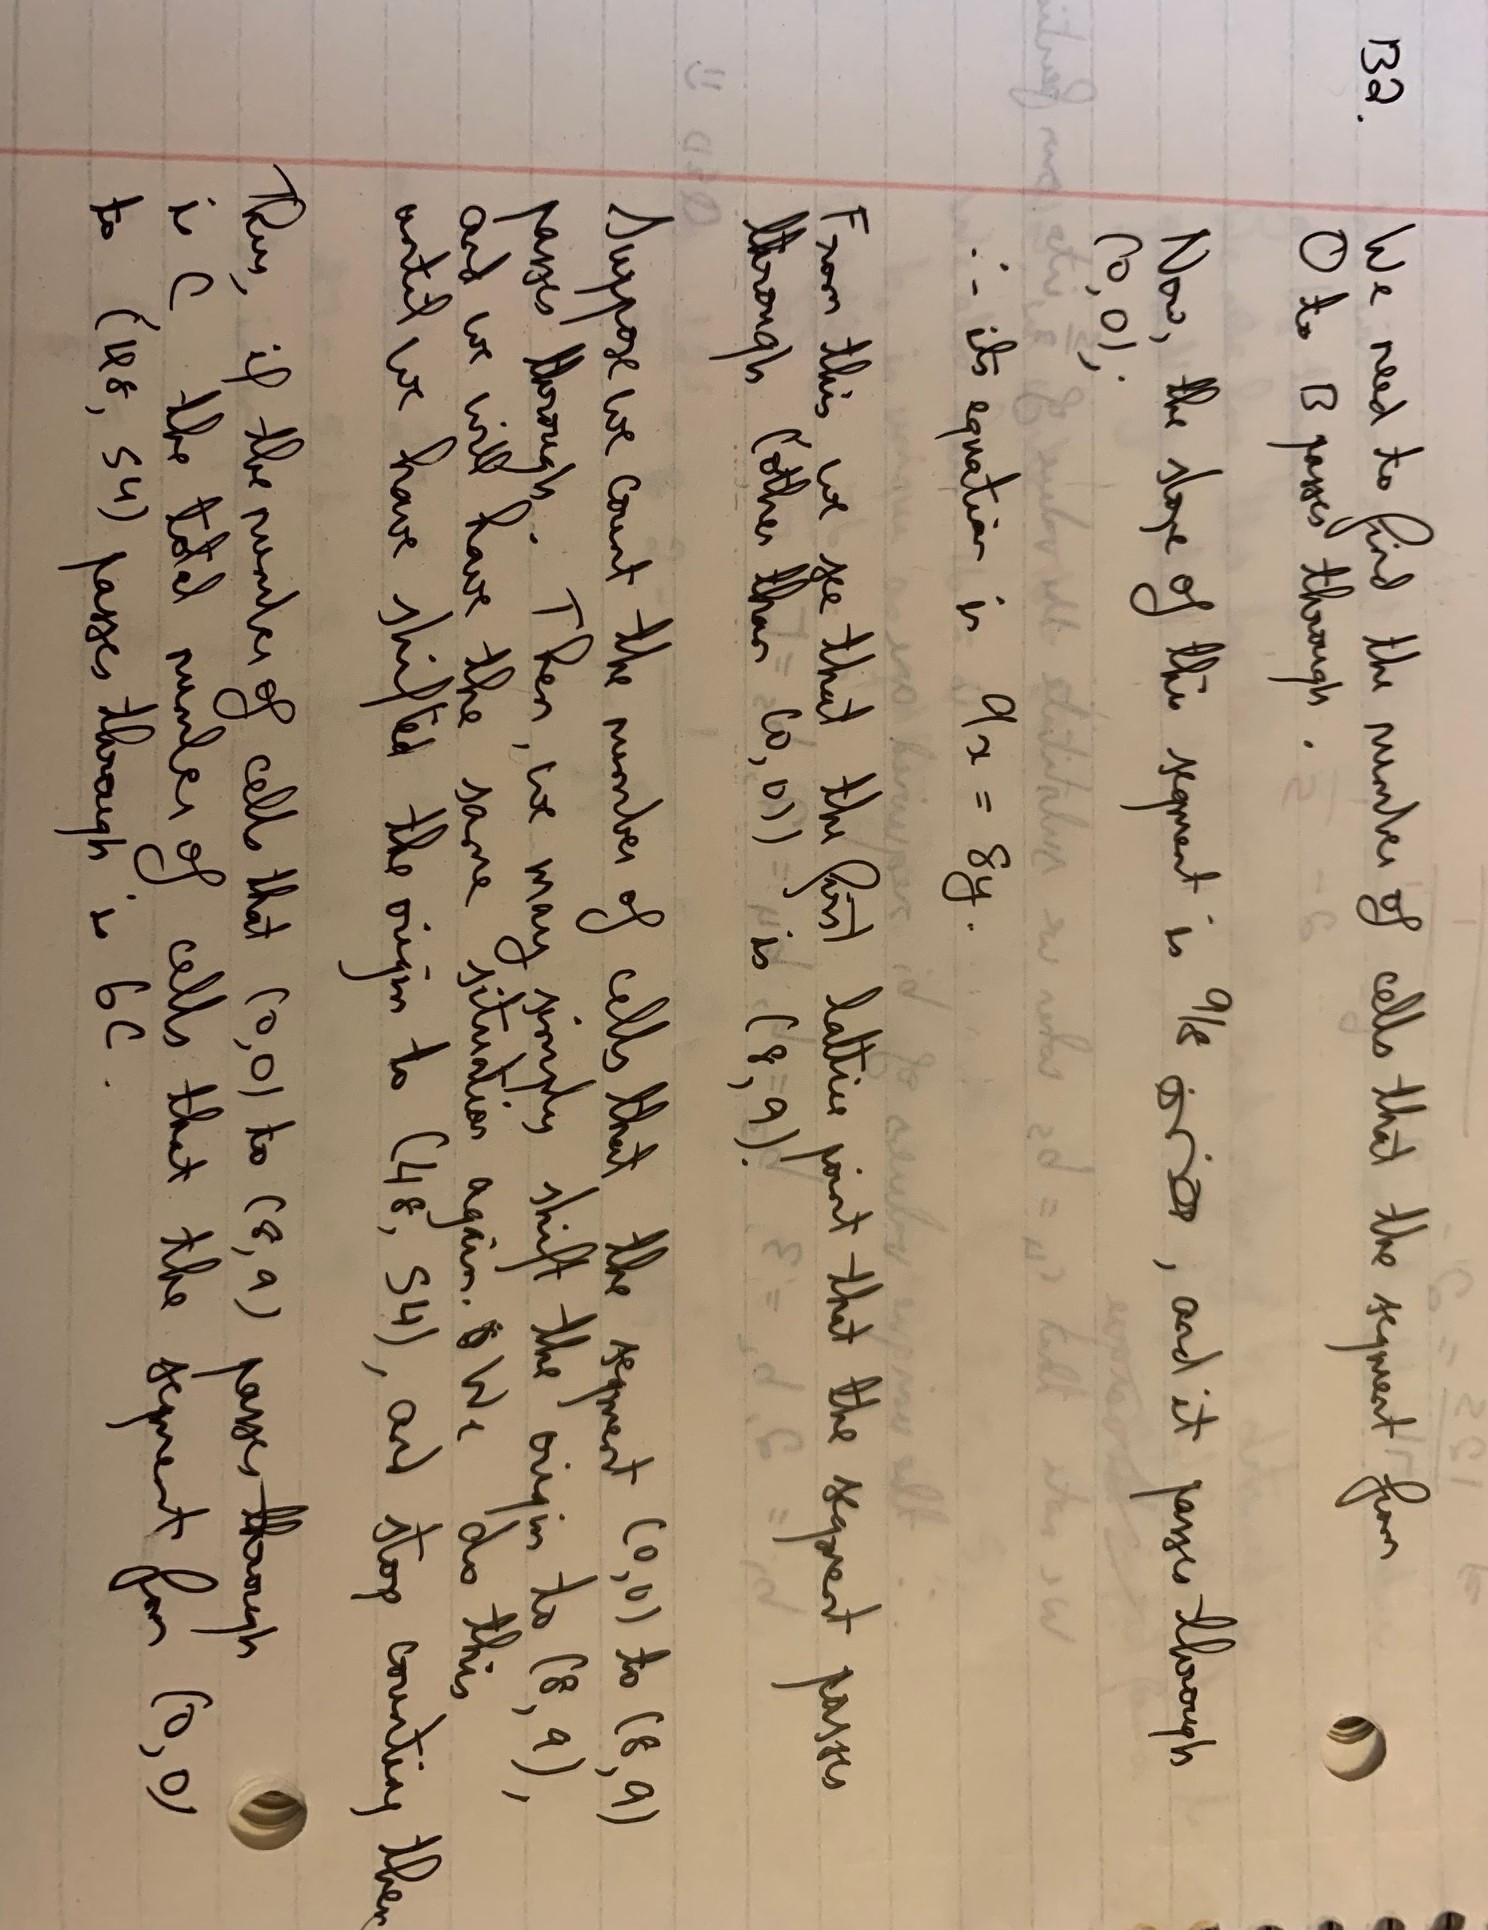 B2.
We need to find the number of cells that the segment from
O to B passes through.
Now, the slope of this segment is 9/8, and it passes through
(0,0).
∴ its equation is 9x = 8y.
From this we see that the first lattice point that the segment passes
through (other than (0,0)) is (8,9).
Suppose we count the number of cells that the segment (0,0) to (8,9)
passes through. Then, we may simply shift the origin to (8,9),
and we will have the same situation again. We do this
until we have shifted the origin to (48,54), and stop counting then
Thus, if the number of cells that (0,0) to (8,9) passes through
is C the total number of cells that the segment from (0,0)
to (48,54) passes through is 6C.